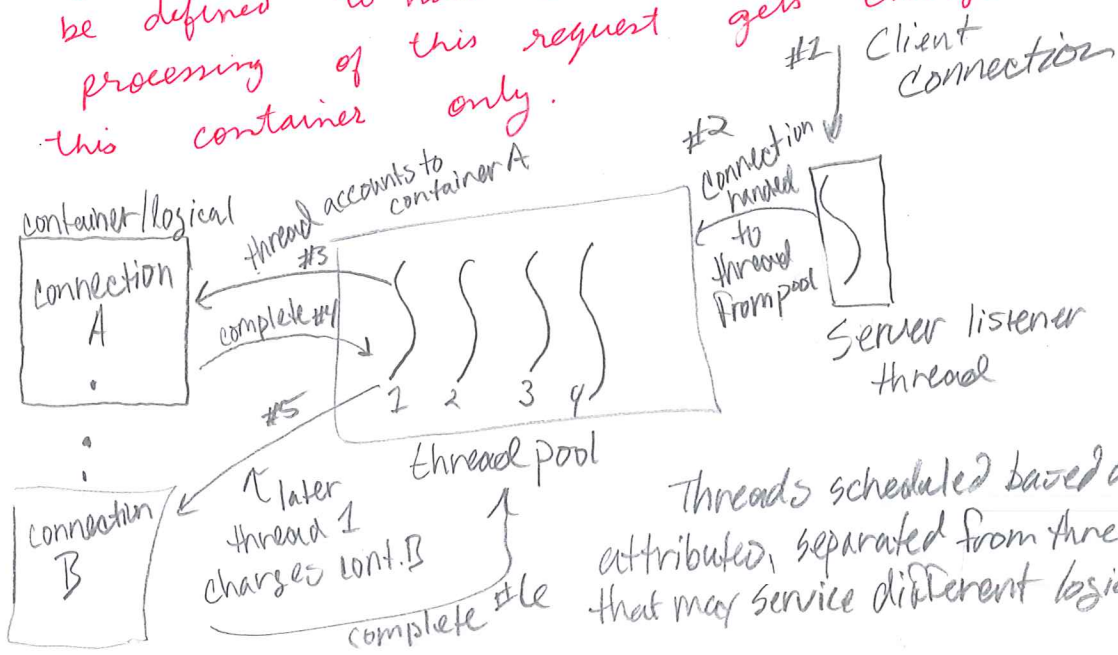 be defined to
processing of this request gets
this container only.
#1 Client
Connection
#2
Connection
handed
to
thread
from pool
Server listener
thread
container/logical
connection
A
thread accounts to
container A
#3
complete #4
1 2 3 4
thread pool
#5
connection
B
later
thread 1
charges cont. B
complete #6
Threads scheduled based
attributes, separated from
that may service different